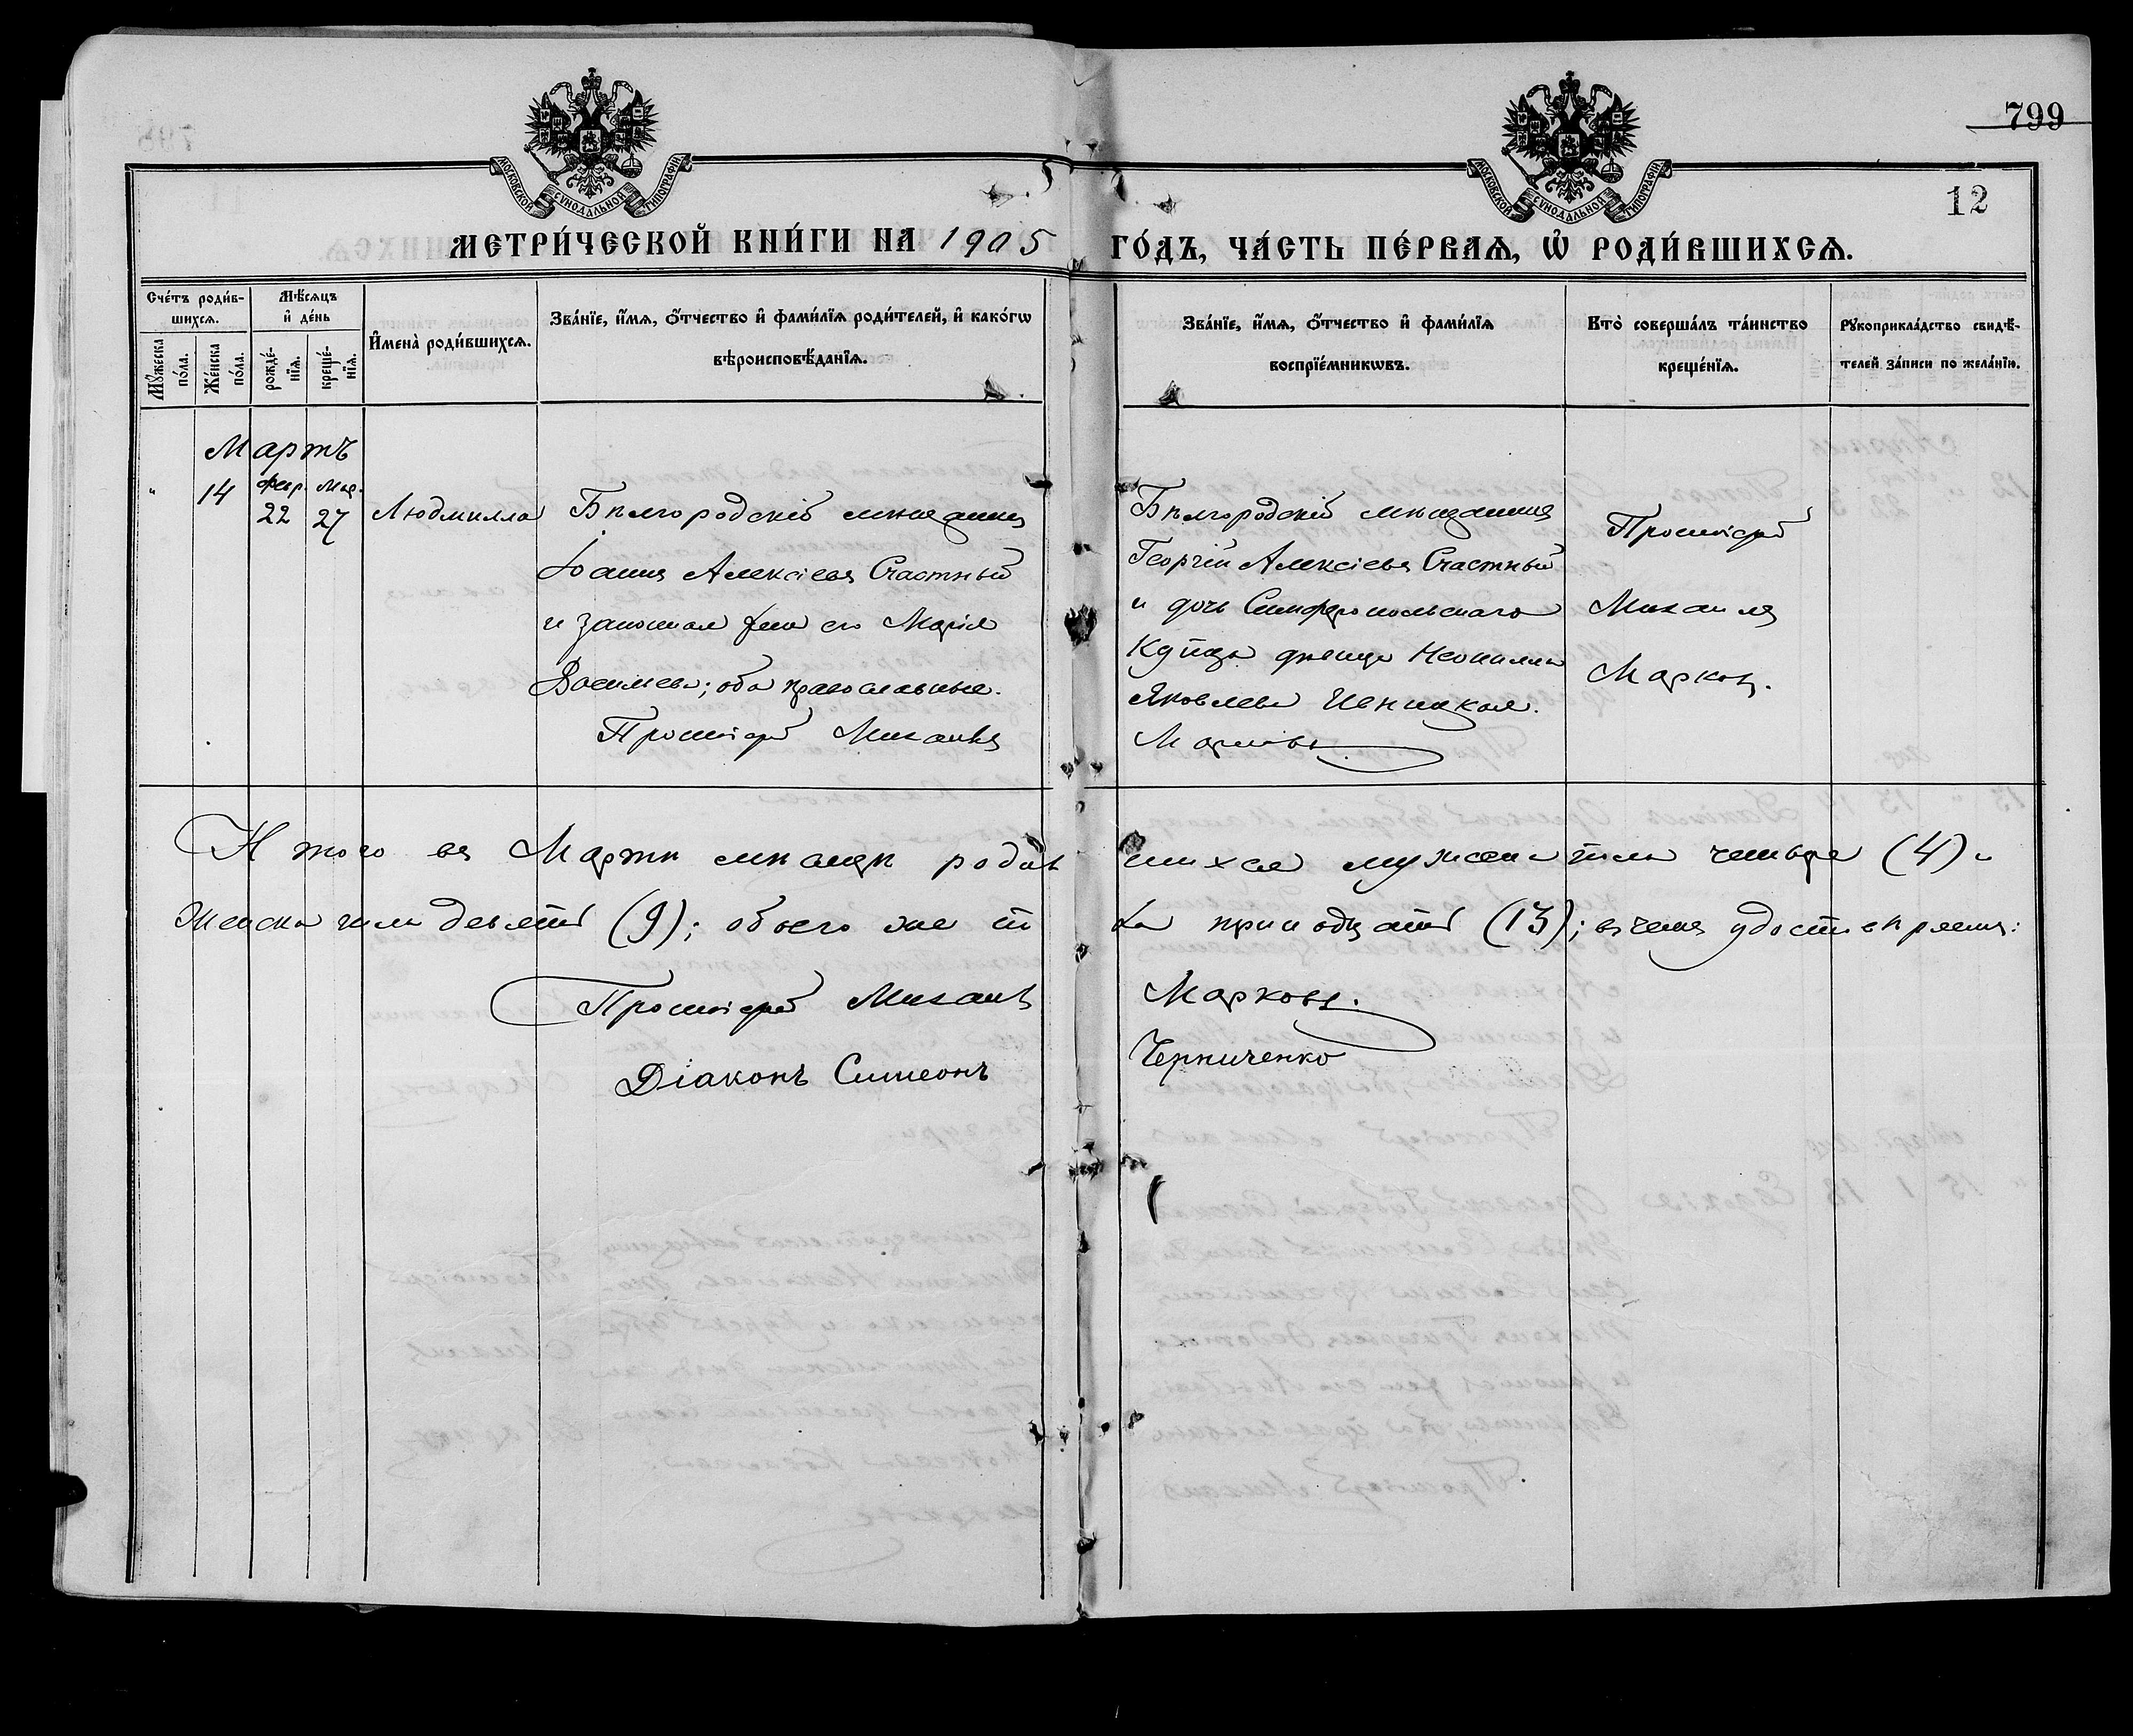 799
12
МОСКОВСКОЙ СѴНОДАЛЬНОЙ ТИПОГРАФІИ
МОСКОВСКОЙ СѴНОДАЛЬНОЙ ТИПОГРАФІИ
МЕТРИ́ЧЕСКОЙ КНИ́ГИ НА 1905 ГО́ДЪ, ЧА́СТЬ ПЕ́РВАѦ, Ѡ҆ РОДИ́ВШИХСѦ.
Сче́тъ роди́в-
шихсѧ.
Мꙋ́жеска
по́ла.
Же́нска
по́ла.
Мѣ́сѧцъ
и҆ де́нь
рожде́-
нїѧ.
креще́-
нїѧ.
И҆мена̀ роди́вшихсѧ.
Зва́нїе, и҆́мѧ, ѻ҆́тчество и҆ фами́лїѧ роди́телей, и҆ како́гѡ
вѣроисповѣ́данїѧ.
Зва́нїе, и҆́мѧ, ѻ҆́тчество и҆ фами́лїѧ
воспрїе́мникѡвъ.
Кто̀ соверша́лъ та́инство
креще́нїѧ.
Рꙋкоприкла́дство свидѣ́-
телей за́писи по жела́нїю.
Мартъ
" 14 Февр. 22 Мар. 27 Людмилла
Бѣлгородскій мѣщанинъ
Іоаннъ Алексіевъ Счастный
и законная жена его Марія
Василіева; оба православные.
Протоіерей Михаилъ
Бѣлгородскій мѣщанинъ
Георгій Алексіевъ Счастный
и дочь Симферопольскаго
Купца дѣвица Неонилла
Яковлева
Марковъ
Протоіерей
Михаилъ
Марковъ.
Итого въ Мартѣ мѣсяцѣ родившихся мужеска пола четыре (4) и
Женска пола девять (9); обоего же пола тринадцать (13); въ чемъ удостовѣряемъ:
Протоіерей Михаилъ Марковъ.
Діаконъ Симеонъ Черниченко